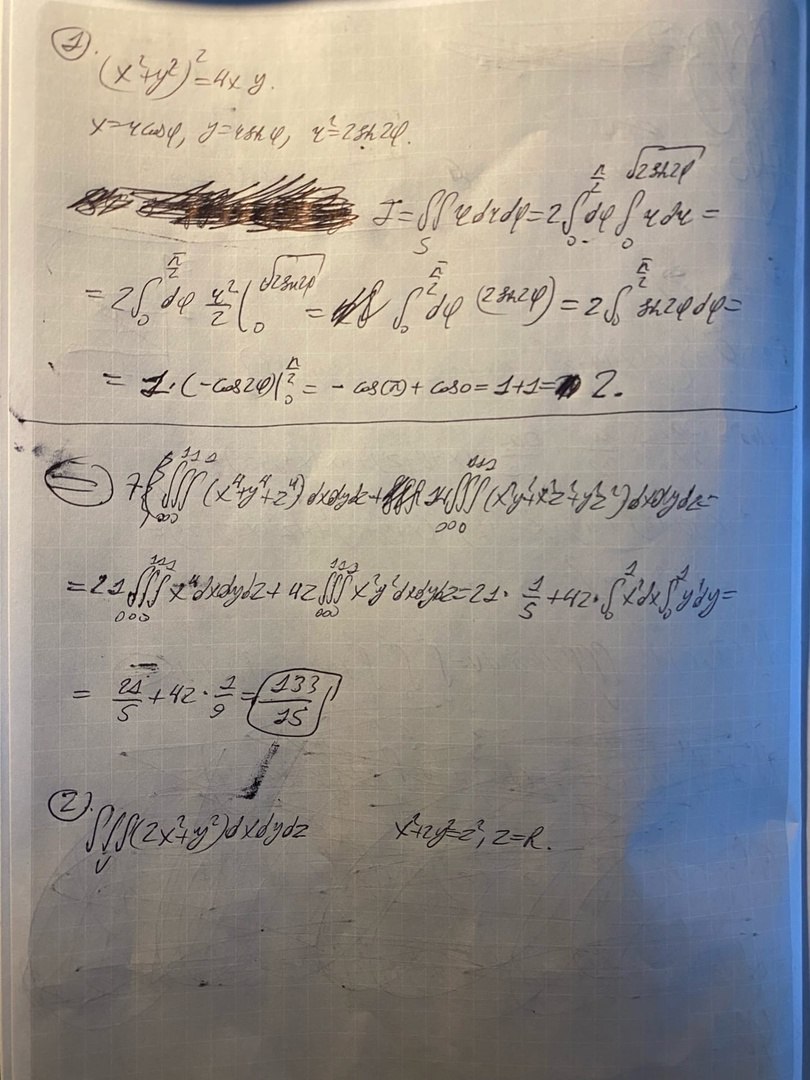 1.
(x²+y²)²=4xy.
x=rcosφ, y=rsinφ, r²=2sin2φ.
I=∬_S r dr dφ=2∫_0^{π/2} dφ ∫_0^{√(2sin2φ)} r dr =
=2∫_0^{π/2} dφ r²/2 |_0^{√(2sin2φ)} = ∫_0^{π/2} dφ (2sin2φ) = 2∫_0^{π/2} sin2φ dφ=
= 1·(-cos2φ)|_0^{π/2} = -cos(π)+cos0=1+1= 2.
= 7∫_0^1∫_0^1∫_0^1 (x⁴+y⁴+z⁴) dxdydz + 14∫_0^1∫_0^1∫_0^1 (x²y²+x²z²+y²z²) dxdydz=
=21∫_0^1∫_0^1∫_0^1 x⁴dxdydz+42∫_0^1∫_0^1∫_0^1 x²y²dxdydz=21·1/5+42·∫_0^1 x²dx∫_0^1 y²dy=
= 21/5+42·1/9=133/15
2.
∭_V(2x²+y²)dxdydz x²+2y²=z², z=R.